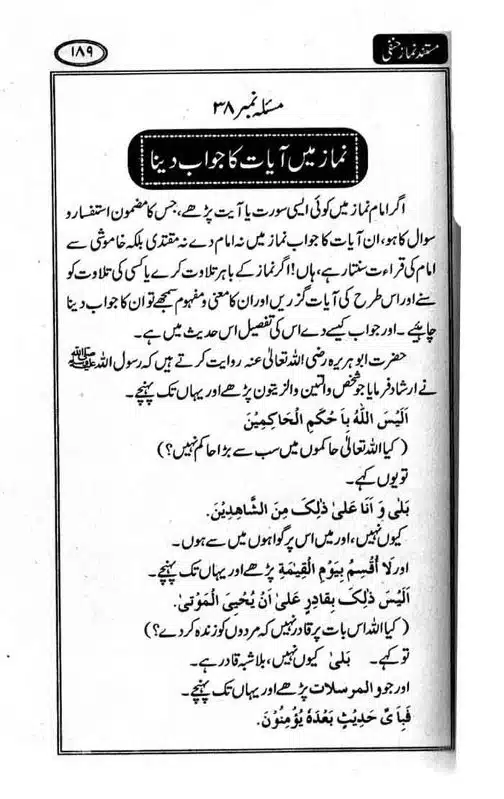 مستند نماز حنفی
۱۸۹
مسئلہ نمبر ۳۸
نماز میں آیات کا جواب دینا
اگر امام نماز میں کوئی ایسی سورت یا آیت پڑھے، جس کا مضمون استفسار و
سوال کا ہو، ان آیات کا جواب نماز میں نہ امام دے نہ مقتدی بلکہ خاموشی سے
امام کی قراءت سنتا رہے، ہاں! اگر نماز کے باہر تلاوت کرے یا کسی کی تلاوت کو
سنے اور اس طرح کی آیات گزریں اور ان کا معنی و مفہوم سمجھے تو ان کا جواب دینا
چاہئیے۔ اور جواب کیسے دے اس کی تفصیل اس حدیث میں ہے۔
حضرت ابو ہریرہ رضی اللہ تعالیٰ عنہ روایت کرتے ہیں کہ رسول اللہ ﷺ
نے ارشاد فرمایا جو شخص والتین والزیتون پڑھے اور یہاں تک پہنچے۔
اَلَیْسَ اللّٰهُ بِاَحْکَمِ الْحَاکِمِیْنَ
(کیا اللہ تعالیٰ حاکموں میں سب سے بڑا حاکم نہیں؟)
تو یوں کہے۔
بَلٰی وَ اَنَا عَلیٰ ذٰلِکَ مِنَ الشَّاهِدِیْنَ.
کیوں نہیں، اور میں اس پر گواہوں میں سے ہوں۔
اور لَا اُقْسِمُ بِیَوْمِ الْقِیٰمَةِ پڑھے اور یہاں تک پہنچے۔
اَلَیْسَ ذٰلِکَ بِقَادِرٍ عَلیٰ اَنْ یُّحْیِیَ الْمَوْتیٰ.
(کیا اللہ اس بات پر قادر نہیں کہ مردوں کو زندہ کر دے؟)
تو کہے۔ بَلیٰ کیوں نہیں، بلاشبہ قادر ہے۔
اور جو والمرسلات پڑھے اور یہاں تک پہنچے۔
فَبِاَیِّ حَدِیْثٍ بَعْدَهٗ یُؤْمِنُوْنَ.